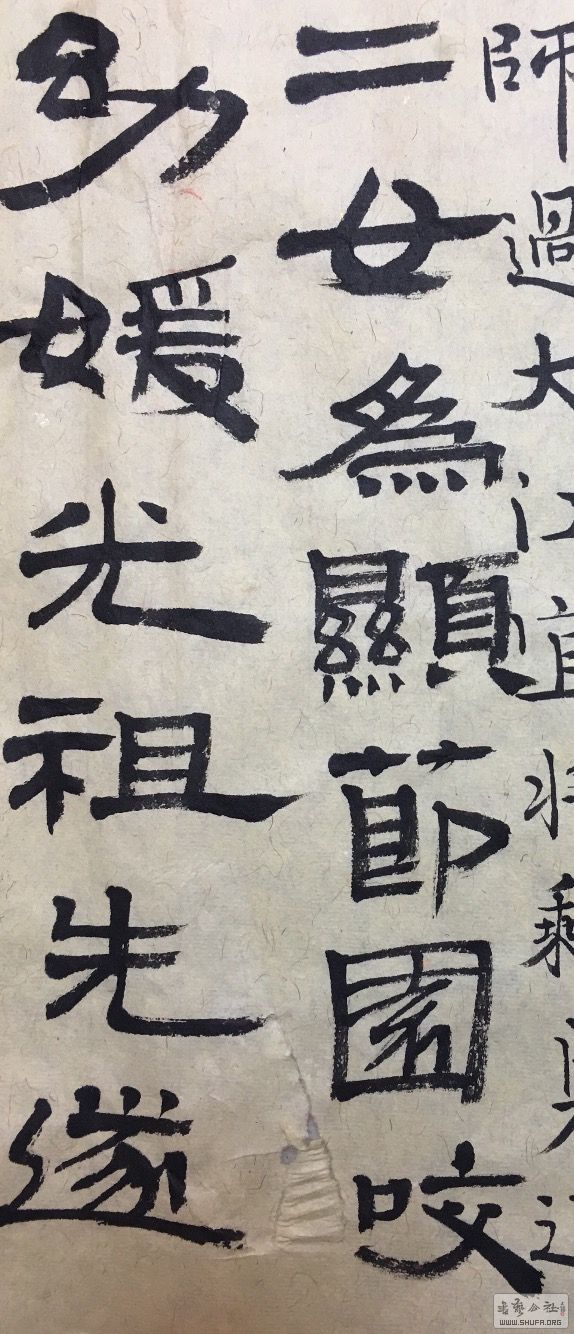 師過大江宜将剩
二女為顯節園咬
幼媛光祖先遂
書藝公社
WWW.SHUFA.ORG